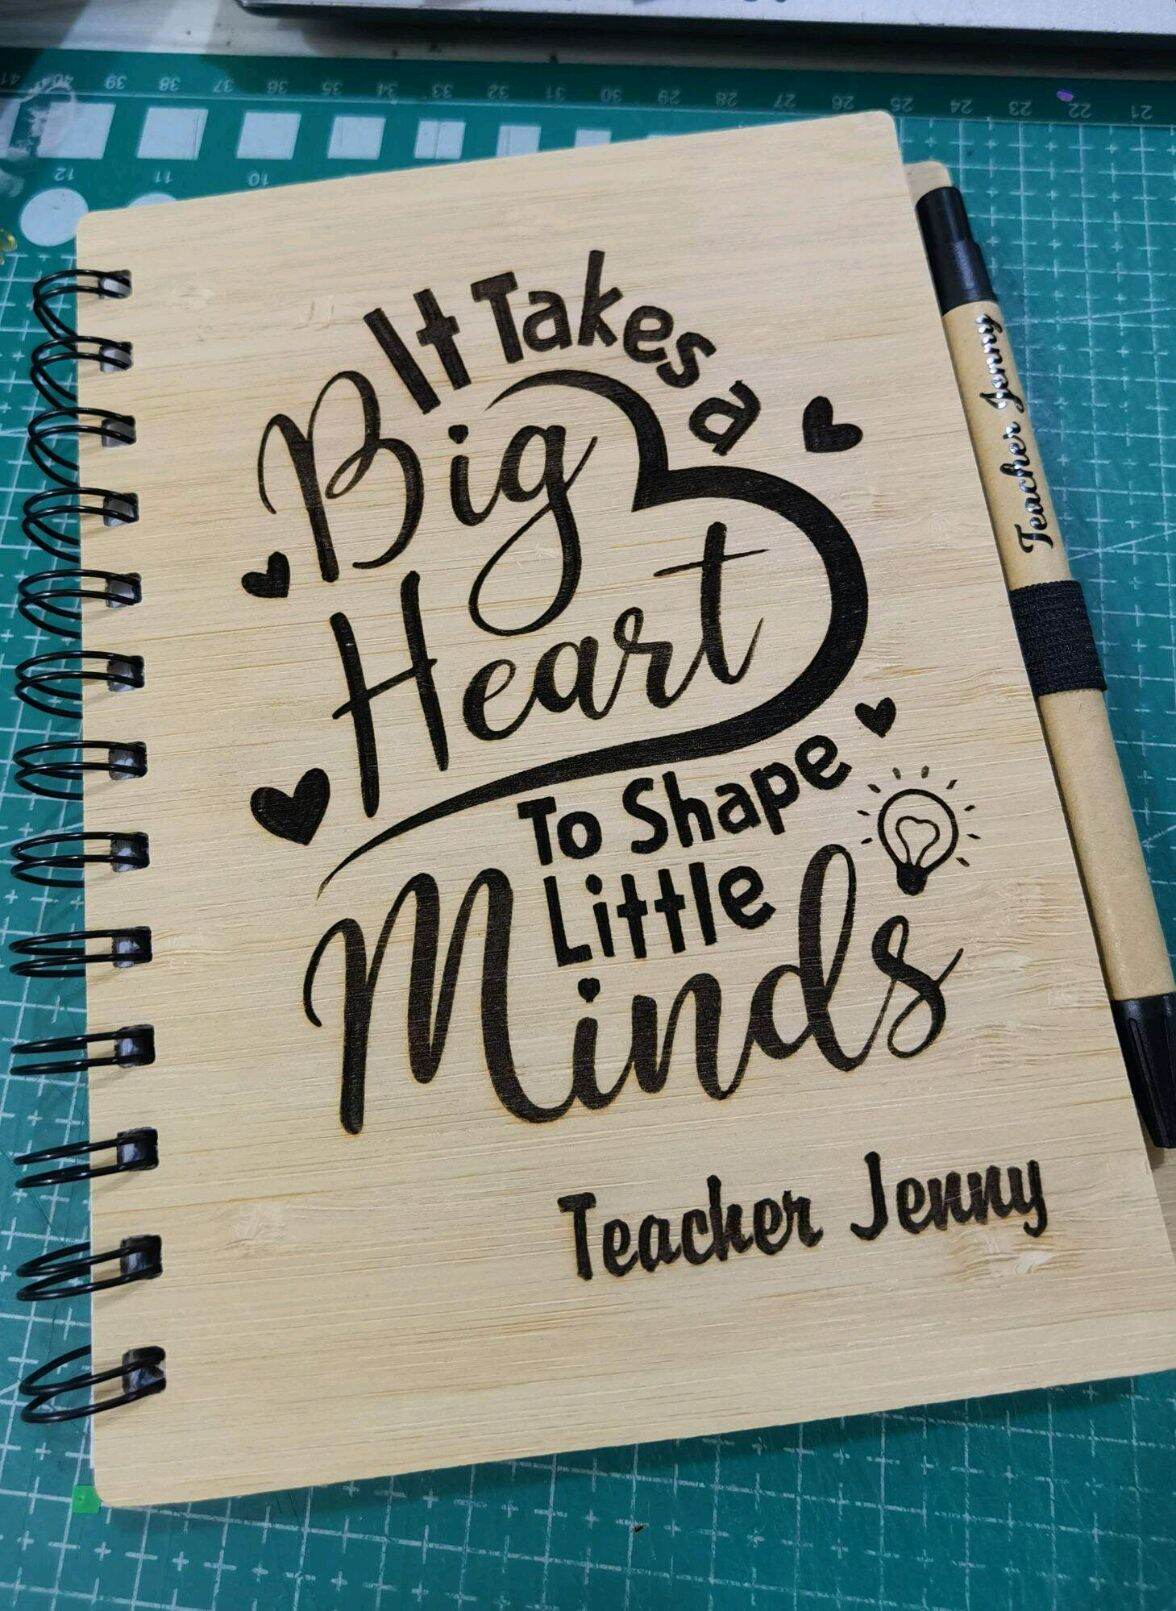 41 40 39 38 37 36 35 34 33 32 31 30 29 28 27 26 25 24 23 22 21
12 11 10
It Takes a
Big
Heart
To Shape
Little
Minds
Teacher Jenny
Teacher Jenny